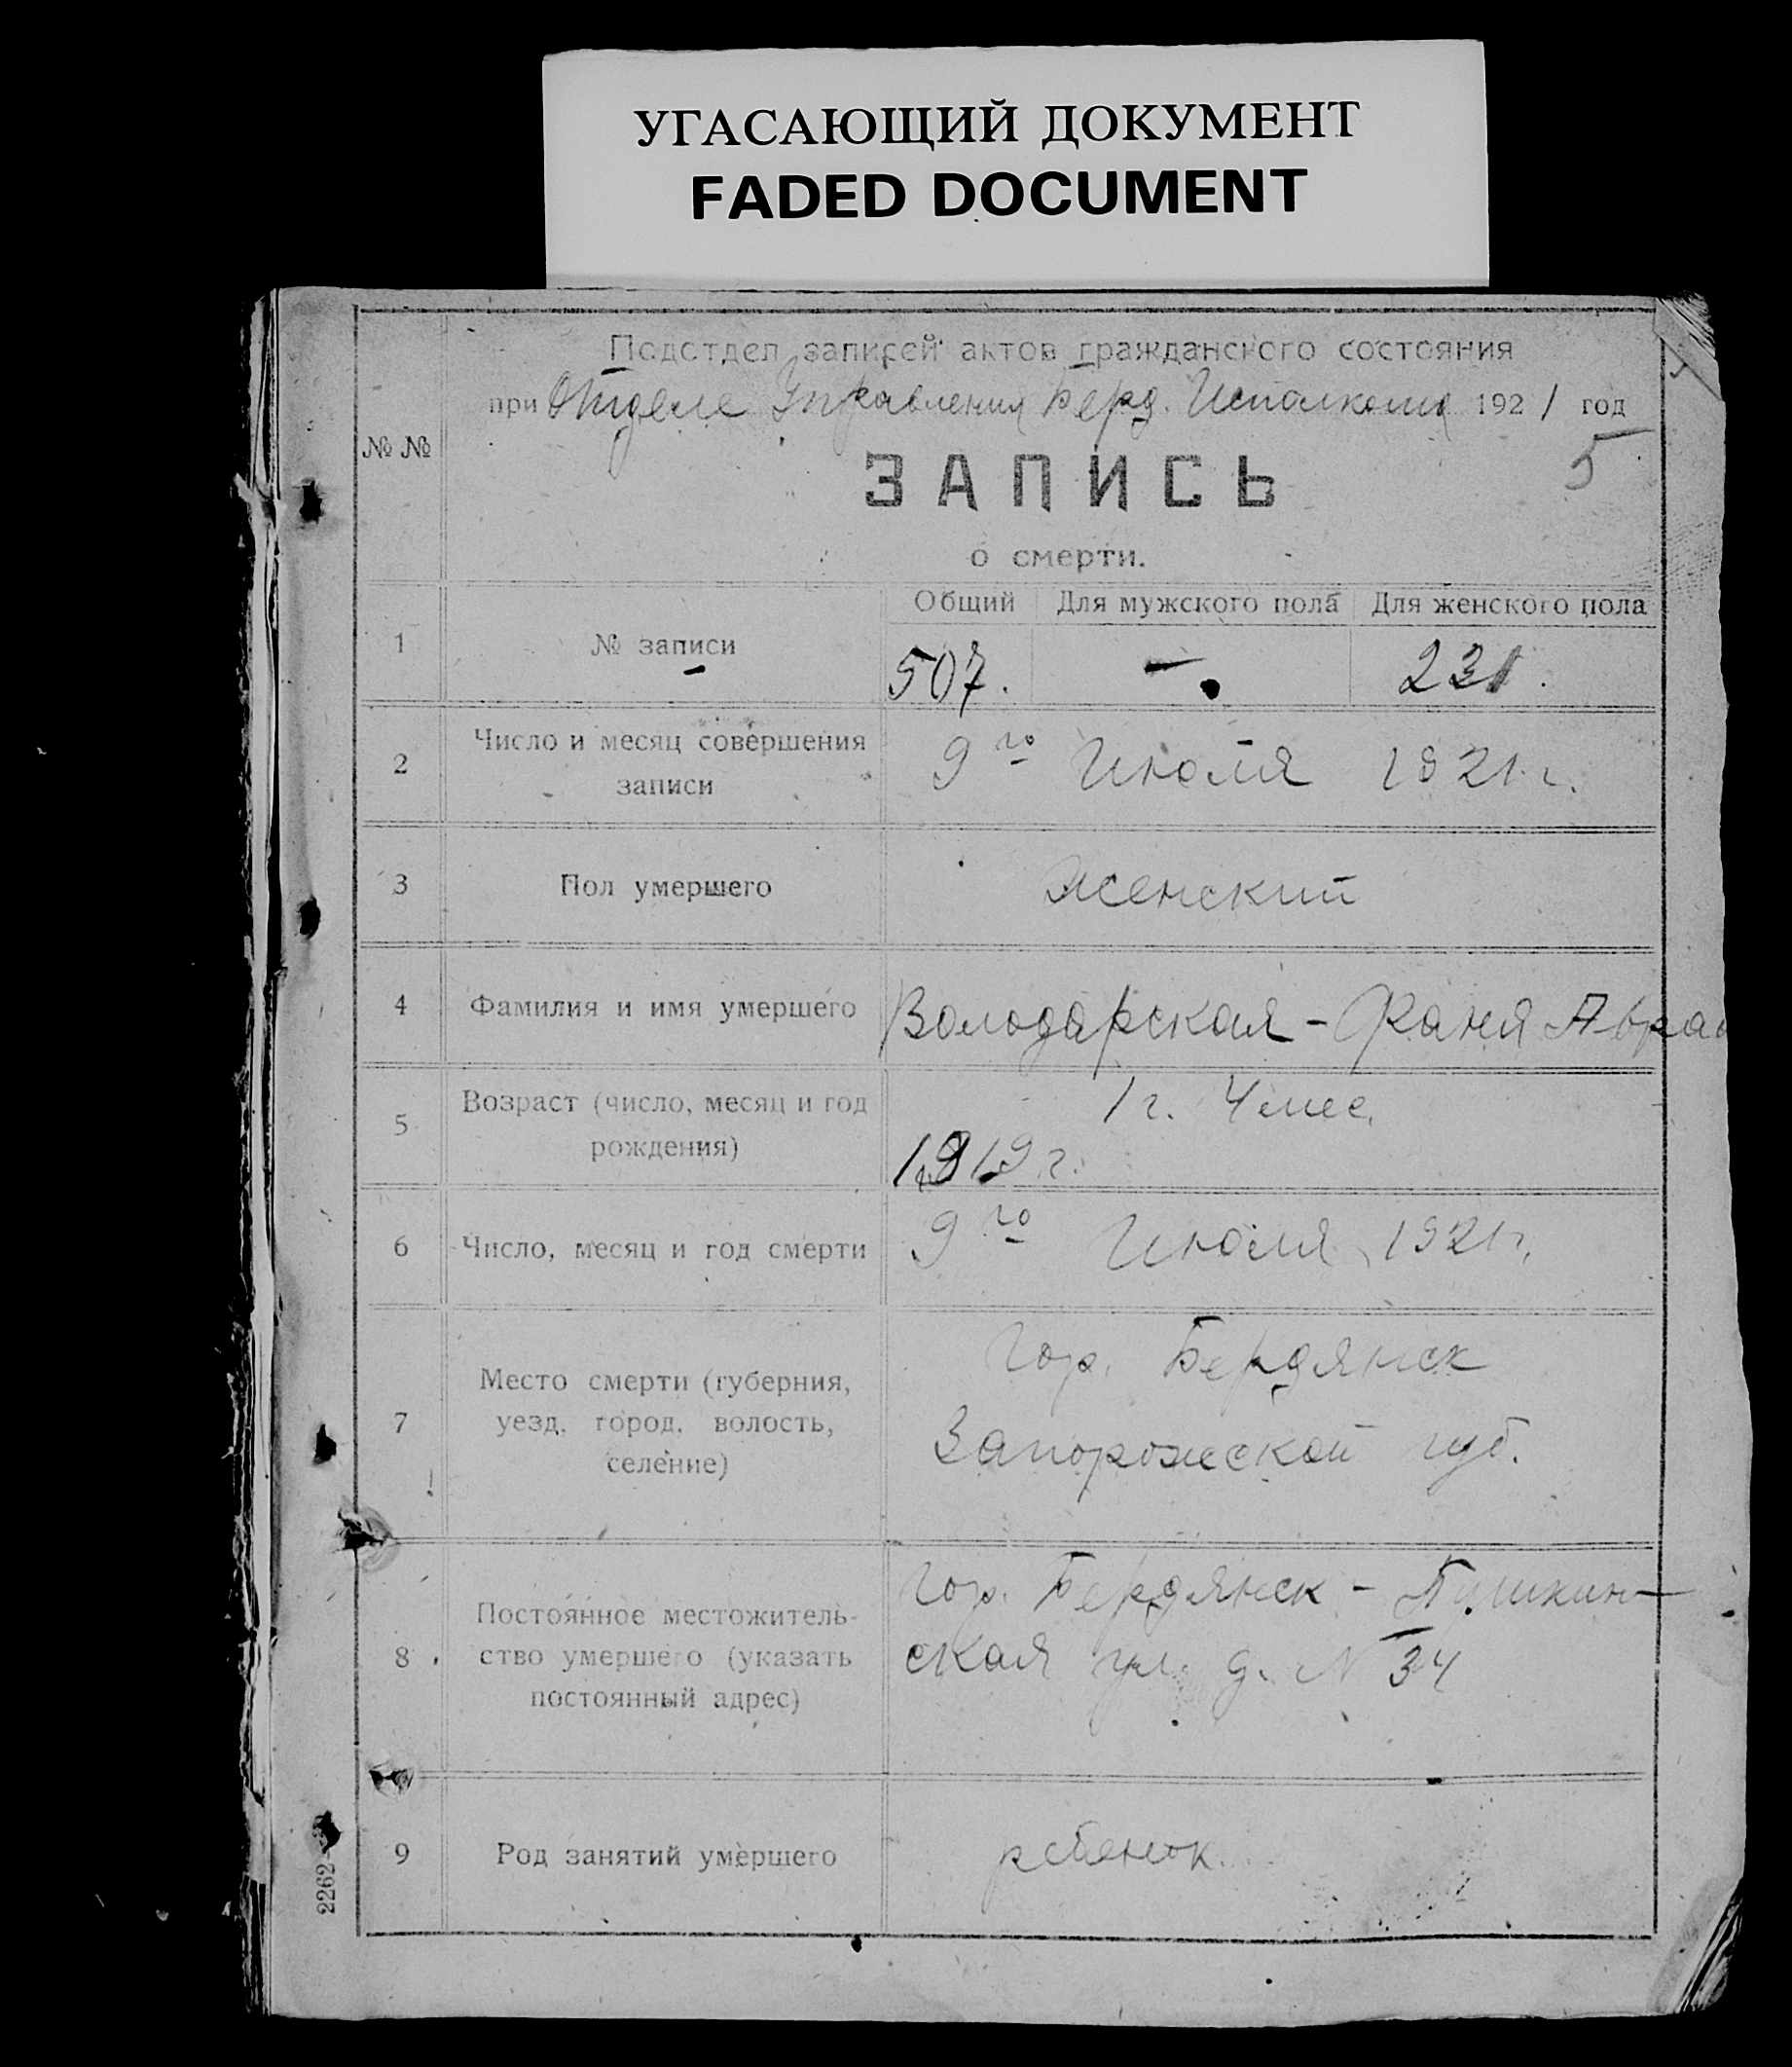 УГАСАЮЩИЙ ДОКУМЕНТ
FADED DOCUMENT
Подотдел записей актов гражданского состояния
при Отделе Управления Берд. Исполкома 1921 год
5
№ №
ЗАПИСЬ
о смерти.
Общий Для мужского пола Для женского пола
1 № записи 507. – 231.
2 Число и месяц совершения
записи
9го Июля 1921 г.
3 Пол умершего женский
4 Фамилия и имя умершего Володарская - Фаня Авра
5 Возраст (число, месяц и год
рождения)
1 г. 4 мес.
1919 г.
6 Число, месяц и год смерти 9го Июля 1921 г.
7 Место смерти (губерния,
уезд, город, волость,
селение)
Гор. Бердянск
Запорожской губ.
8 Постоянное местожитель-
ство умершего (указать
постоянный адрес)
Гор. Бердянск - Пушкин-
ская ул. д. № 34
9 Род занятий умершего ребенок.
2262